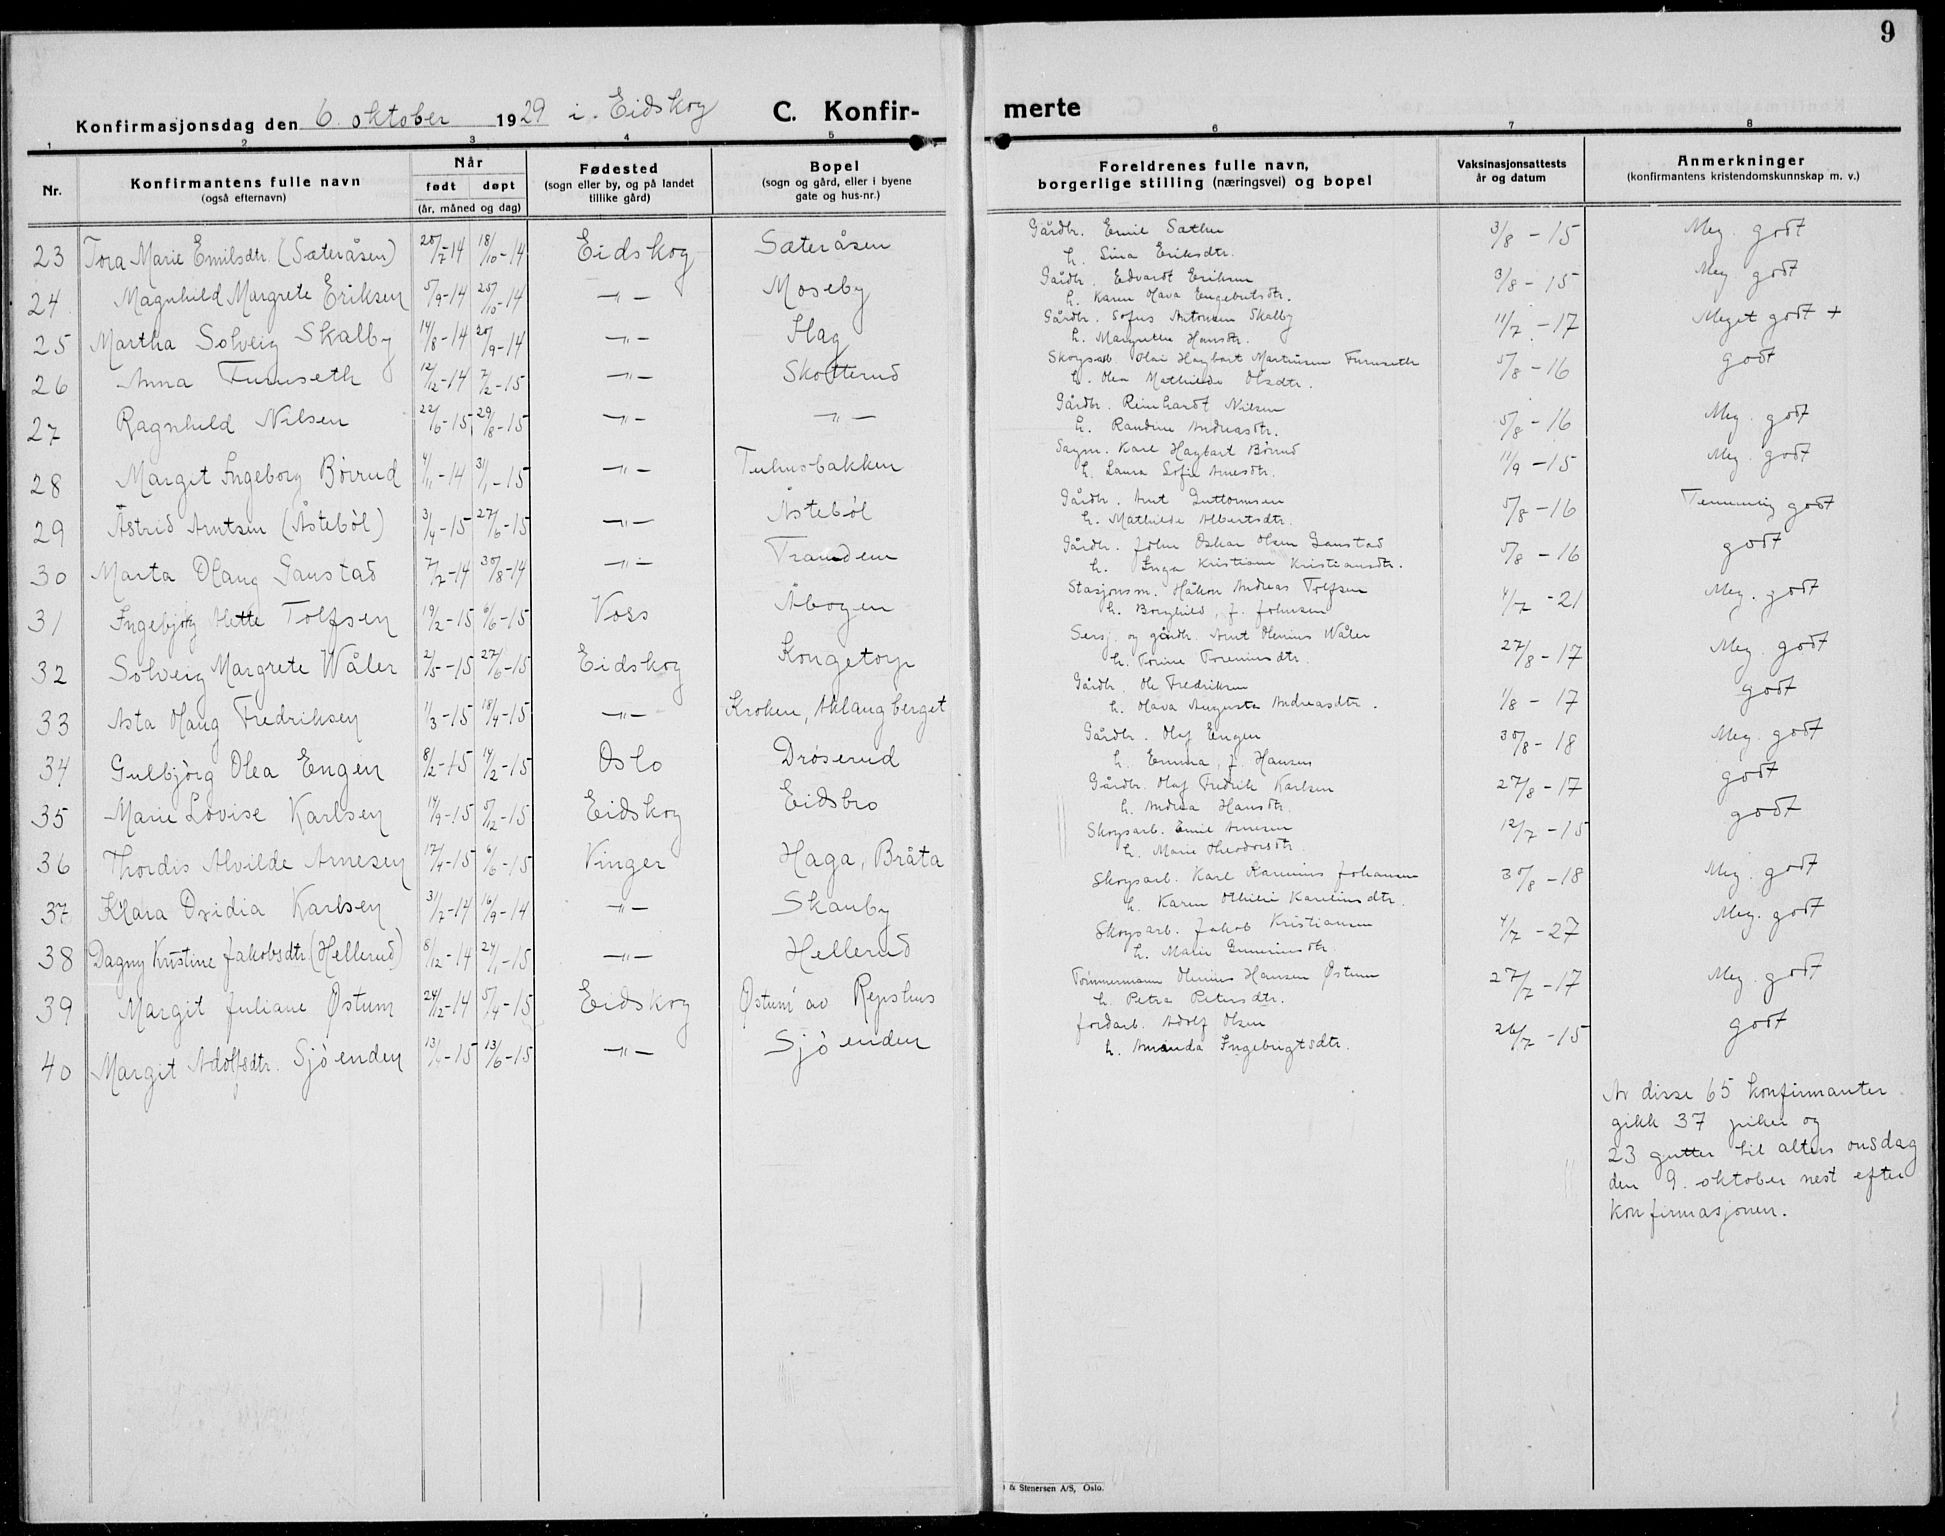 9
Konfirmasjonsdag den 6. oktober 1929 i Eidskog C. Konfir- merte
1 2 3 4 5 6 7 8
Nr. Konfirmantens fulle navn (også efternavn) Når født døpt (år, måned og dag) Fødested (sogn eller by, og på landet tillike gård) Bopel (sogn og gård, eller i byene gate og hus-nr.) Foreldrenes fulle navn, borgerlige stilling (næringsvei) og bopel Vaksinasjonsattests år og datum Anmerkninger (konfirmantens kristendomskunnskap m. v.)
23 Tora Marie Emilsdtr. (Sæteråsen) 20/7-14 18/10-14 Eidskog Sæteråsen Gårdbr. Emil Sæther 3/8-15 Meg. godt
h. Lina Eriksdtr.
24 Magnhild Margrete Eriksen 5/9-14 25/10-14 -"- Moseby Gårdbr. Edvardt Eriksen 3/8-15 Meg. godt
h. Karen Olava Engebretsdtr.
25 Martha Solveig Skalby 14/8-14 20/9-14 -"- Hag Gårdbr. Sofus Antonsen Skalby 11/7-17 Meget godt +
h. Margrethe Hansdtr.
26 Anna Furuseth 12/12-14 7/2-15 -"- Skotterud Skogsarb. Olai Hagbart Martinsen Furuseth 5/8-16 godt
h. Olea Mathilde Olsdtr.
27 Ragnhild Nilsen 22/6-15 29/8-15 -"- -"- Gårdbr. Reinhardt Nilsen 5/8-16 Meg. godt
h. Randine Andreasdtr.
28 Margit Ingeborg Børrud 4/11-14 31/1-15 -"- Tuhusbakken Sagm. Karl Hagbart Børrud 11/9-15 Meg. godt
h. Laura Sofie Arnesdtr.
29 Astrid Arntsen (Åstebøl) 3/4-15 27/6-15 -"- Åstebøl Gårdbr. Arnt Guttormsen 5/8-16 Temmelig godt
h. Mathilde Albertsdtr.
30 Marta Olaug Ganstad 7/7-14 30/8-14 -"- Trandem Gårdbr. John Oskar Olsen Ganstad 5/8-16 godt
h. Inga Kristiane Kristiansdtr.
31 Ingebjørg Mette Tolfsen 19/2-15 6/6-15 Voss Åbogen Stasjonsm. Håkon Andreas Tolfsen 4/7-21 Meg. godt
h. Borghild, f. Johnsen
32 Solveig Margrete Wåler 2/5-15 27/6-15 Eidskog Kongetorp Sersj. og gårdbr. Arnt Olenius Wåler 27/8-17 Meg. godt
h. Torine Toreniusdtr.
33 Asta Olaug Fredriksen 1/3-15 18/4-15 -"- Kroken, Aklangberget Gårdbr. Ole Fredriksen 1/8-17 godt
h. Olava Augusta Andreasdtr.
34 Gulbjørg Olea Engen 8/2-15 14/2-15 Oslo Drøserud Gårdbr. Olaf Engen 30/8-18 Meg. godt
h. Emma, f. Hansen
35 Marie Lovise Karlsen 14/9-15 5/12-15 Eidskog Eidsbro Gårdbr. Olaf Fredrik Karlsen 27/8-17 godt
h. Andrea Hansdtr.
36 Thordis Alvilde Arnesen 17/4-15 6/6-15 Vinger Haga, Bråta Skogsarb. Emil Arnesen 12/7-15 godt
h. Marie Theodorsdtr.
37 Klara Ovidia Karlsen 31/7-14 16/9-14 -"- Skauby Skogsarb. Karl Karenius Johansen 30/8-18 Meg. godt
h. Karen Othilie Kareliusdtr.
38 Dagny Kristine Jakobsdtr. (Hellerud) 8/12-14 24/1-15 -"- Hellerud Skogsarb. Jakob Kristiansen 4/7-27 Meg. godt
h. Marie Gunneriusdtr.
39 Margit Juliane Østum 24/12-14 5/4-15 Eidskog Østum av Repshus Tømmermann Olenius Hansen Østum 27/7-17 Meg. godt
h. Petra Petersdtr.
40 Margit Adolfsdtr. Sjøenden 13/4-15 13/6-15 -"- Sjøenden Jordarb. Adolf Olsen 26/7-15 godt
h. Amanda Ingebrigtsdtr.
Av disse 65 konfirmanter
gikk 37 piker og
23 gutter til alters onsdag
den 9. oktober nest efter
konfirmasjonen.
& Stenersen A/S, Oslo.